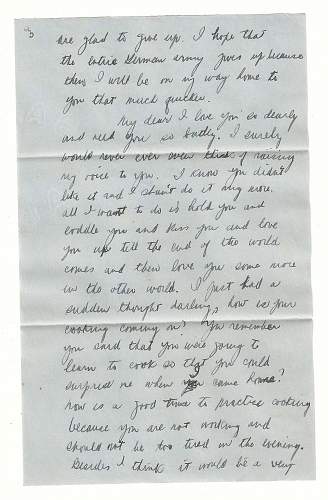 3
are glad to give up. I hope that
the entire German army gives up because
then I will be on my way home to
you that much quicker.
My dear I love you so dearly
and need you so badly. I surely
would never ever even think of raising
my voice to you. I know you didn't
like it and I shan't do it any more.
all I want to do is hold you and
coddle you and kiss you and love
you up till the end of the world
comes and then love you some more
in the other world. I just had a
sudden thought darling, how is your
cooking coming on? You remember
you said that you were going to
learn to cook so that you could
surprise me when I came home?
now is a good time to practice cooking
because you are not working and
should not be too tired in the evening.
Besides I think it would be a very